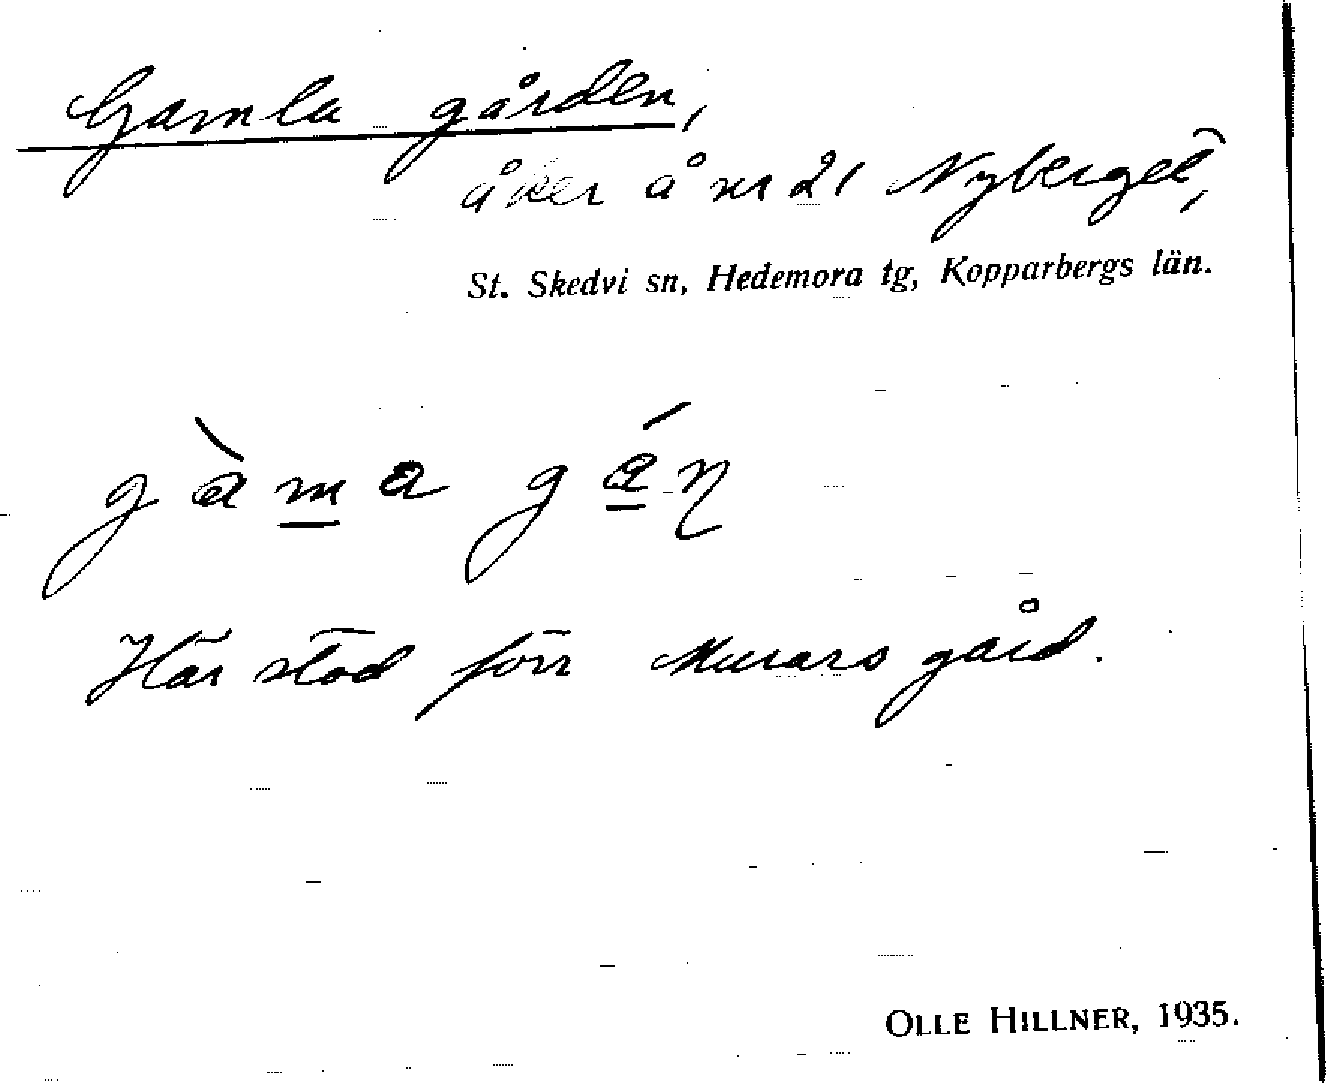 Gamla gården,
åker å nr 21 Nyberget,
St. Skedvi sn, Hedemora tg, Kopparbergs län.
gàma gáɳ
Här stod förr Murars gård.
OLLE HILLNER, 1935.